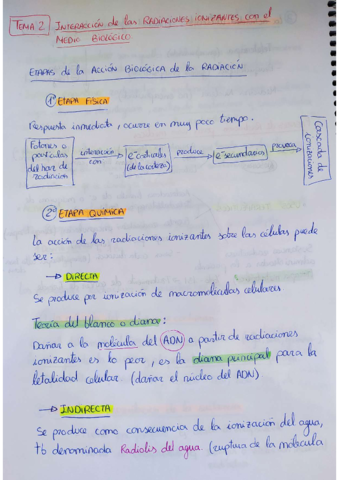 TEMA 2 INTERACCIÓN de las RADIACIONES IONIZANTES con el
MEDIO BIOLÓGICO
ETAPAS de la ACCIÓN BIOLÓGICA de la RADIACIÓN
1ª ETAPA FÍSICA
Respuesta inmediata, ocurre en muy poco tiempo.
Fotones o
partículas
del haz de
radiación
interacción
con
e⁻ corticales
(de la corteza)
produce
e⁻ secundarios
provoca
Cascada de
ionizaciones
2ª ETAPA QUÍMICA
La acción de las radiaciones ionizantes sobre las células puede
ser:
→ DIRECTA
Se produce por ionización de macromoléculas celulares
Teoría del blanco o diana:
Dañar a la molécula del ADN a partir de radiaciones
ionizantes es lo peor, es la diana principal para la
letalidad celular (dañar el núcleo del ADN)
→ INDIRECTA
Se produce como consecuencia de la ionización del agua,
tb denominada Radiolis del agua. (ruptura de la molécula